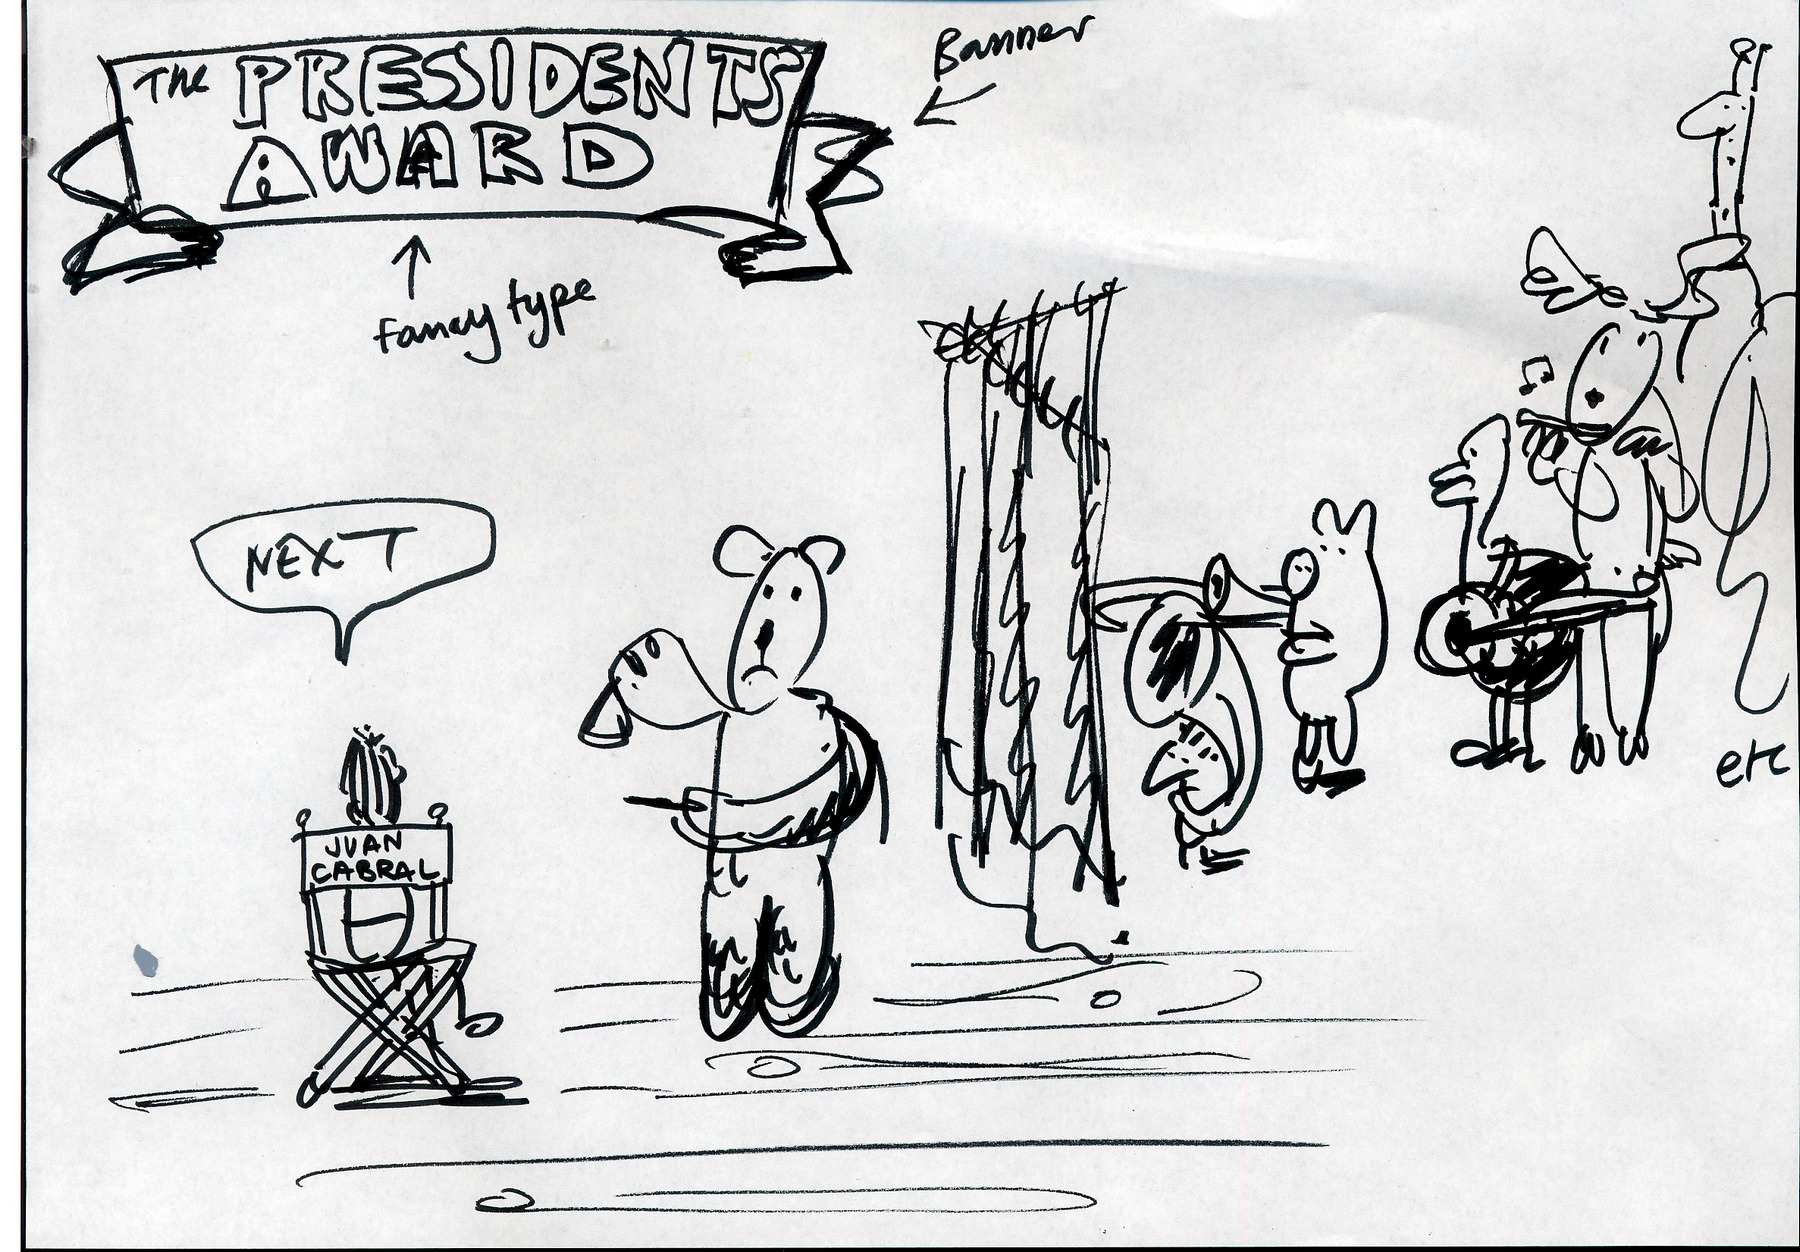 The PRESIDENTS
AWARD
Banner
fancy type
NEXT
JUAN
CABRAL
etc